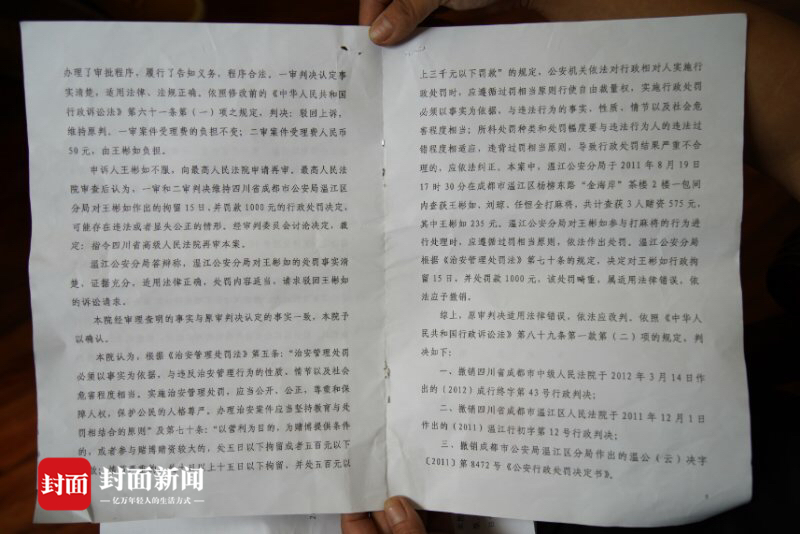 办理了审批程序，履行了告知义务，程序合法。一审判决认定事
实清楚，适用法律、法规正确。依照修改前的《中华人民共和国
行政诉讼法》第六十一条第（一）项之规定，判决：驳回上诉，
维持原判。一审案件受理费的负担不变；二审案件受理费人民币
50元，由王彬如负担。
申诉人王彬如不服，向最高人民法院申请再审。最高人民法
院审查后认为，一审和二审判决维持四川省成都市公安局温江区
分局对王彬如作出的拘留15日，并罚款1000元的行政处罚决定，
可能存在违法或者显失公正的情形。经审判委员会讨论决定，裁
定：指令四川省高级人民法院再审本案。
温江公安分局答辩称，温江公安分局对王彬如的处罚事实清
楚、证据充分，适用法律正确，处罚内容适当，请求驳回王彬如
的诉讼请求。
本院经审理查明的事实与原审判决认定的事实一致，本院予
以确认。
本院认为，根据《治安管理处罚法》第五条：“治安管理处罚
必须以事实为依据，与违反治安管理行为的性质、情节以及社会
危害程度相当。实施治安管理处罚，应当公开、公正，尊重和保
障人权，保护公民的人格尊严。办理治安案件应当坚持教育与处
罚相结合的原则”及第七十条：“以营利为目的，为赌博提供条件
的，或者参与赌博赌资较大的，处五日以下拘留或者五百元以下
以上十五日以下拘留，并处五百元以
上三千元以下罚款”的规定，公安机关依法对行政相对人实施行
政处罚时，应遵循过罚相当原则行使自由裁量权，实施行政处罚
必须以事实为依据，与违法行为的事实，性质、情节以及社会危
害程度相当；所科处罚种类和处罚幅度要与违法行为人的违法过
错程度相适应，违背过罚相当原则，导致行政处罚结果严重不合
理的，应依法纠正。本案中，温江公安分局于2011年8月19日
17时30分在成都市温江区杨柳东路“金海岸”茶楼2楼一包间
内查获王彬如、刘琼、任恒全打麻将，共计查获3人赌资575元，
其中王彬如235元。温江公安分局对王彬如参与打麻将的行为进
行处理时，应遵循过罚相当原则，依法作出处罚。温江公安分局
根据《治安管理处罚法》第七十条的规定，决定对王彬如行政拘
留15日，并处罚款1000元，该处罚畸重，属适用法律错误，依
法应予撤销。
综上，原审判决适用法律错误，依法应改判。依照《中华人
民共和国行政诉讼法》第八十九条第一款第（二）项的规定，判
决如下：
一、撤销四川省成都市中级人民法院于2012年3月14日作
出的（2012）成行终字第43号行政判决；
二、撤销四川省成都市温江区人民法院于2011年12月1日
作出的（2011）温江行初字第12号行政判决；
三、撤销成都市公安局温江区分局作出的温公（云）决字
〔2011〕第8472号《公安行政处罚决定书》。
封面 封面新闻
亿万年轻人的生活方式